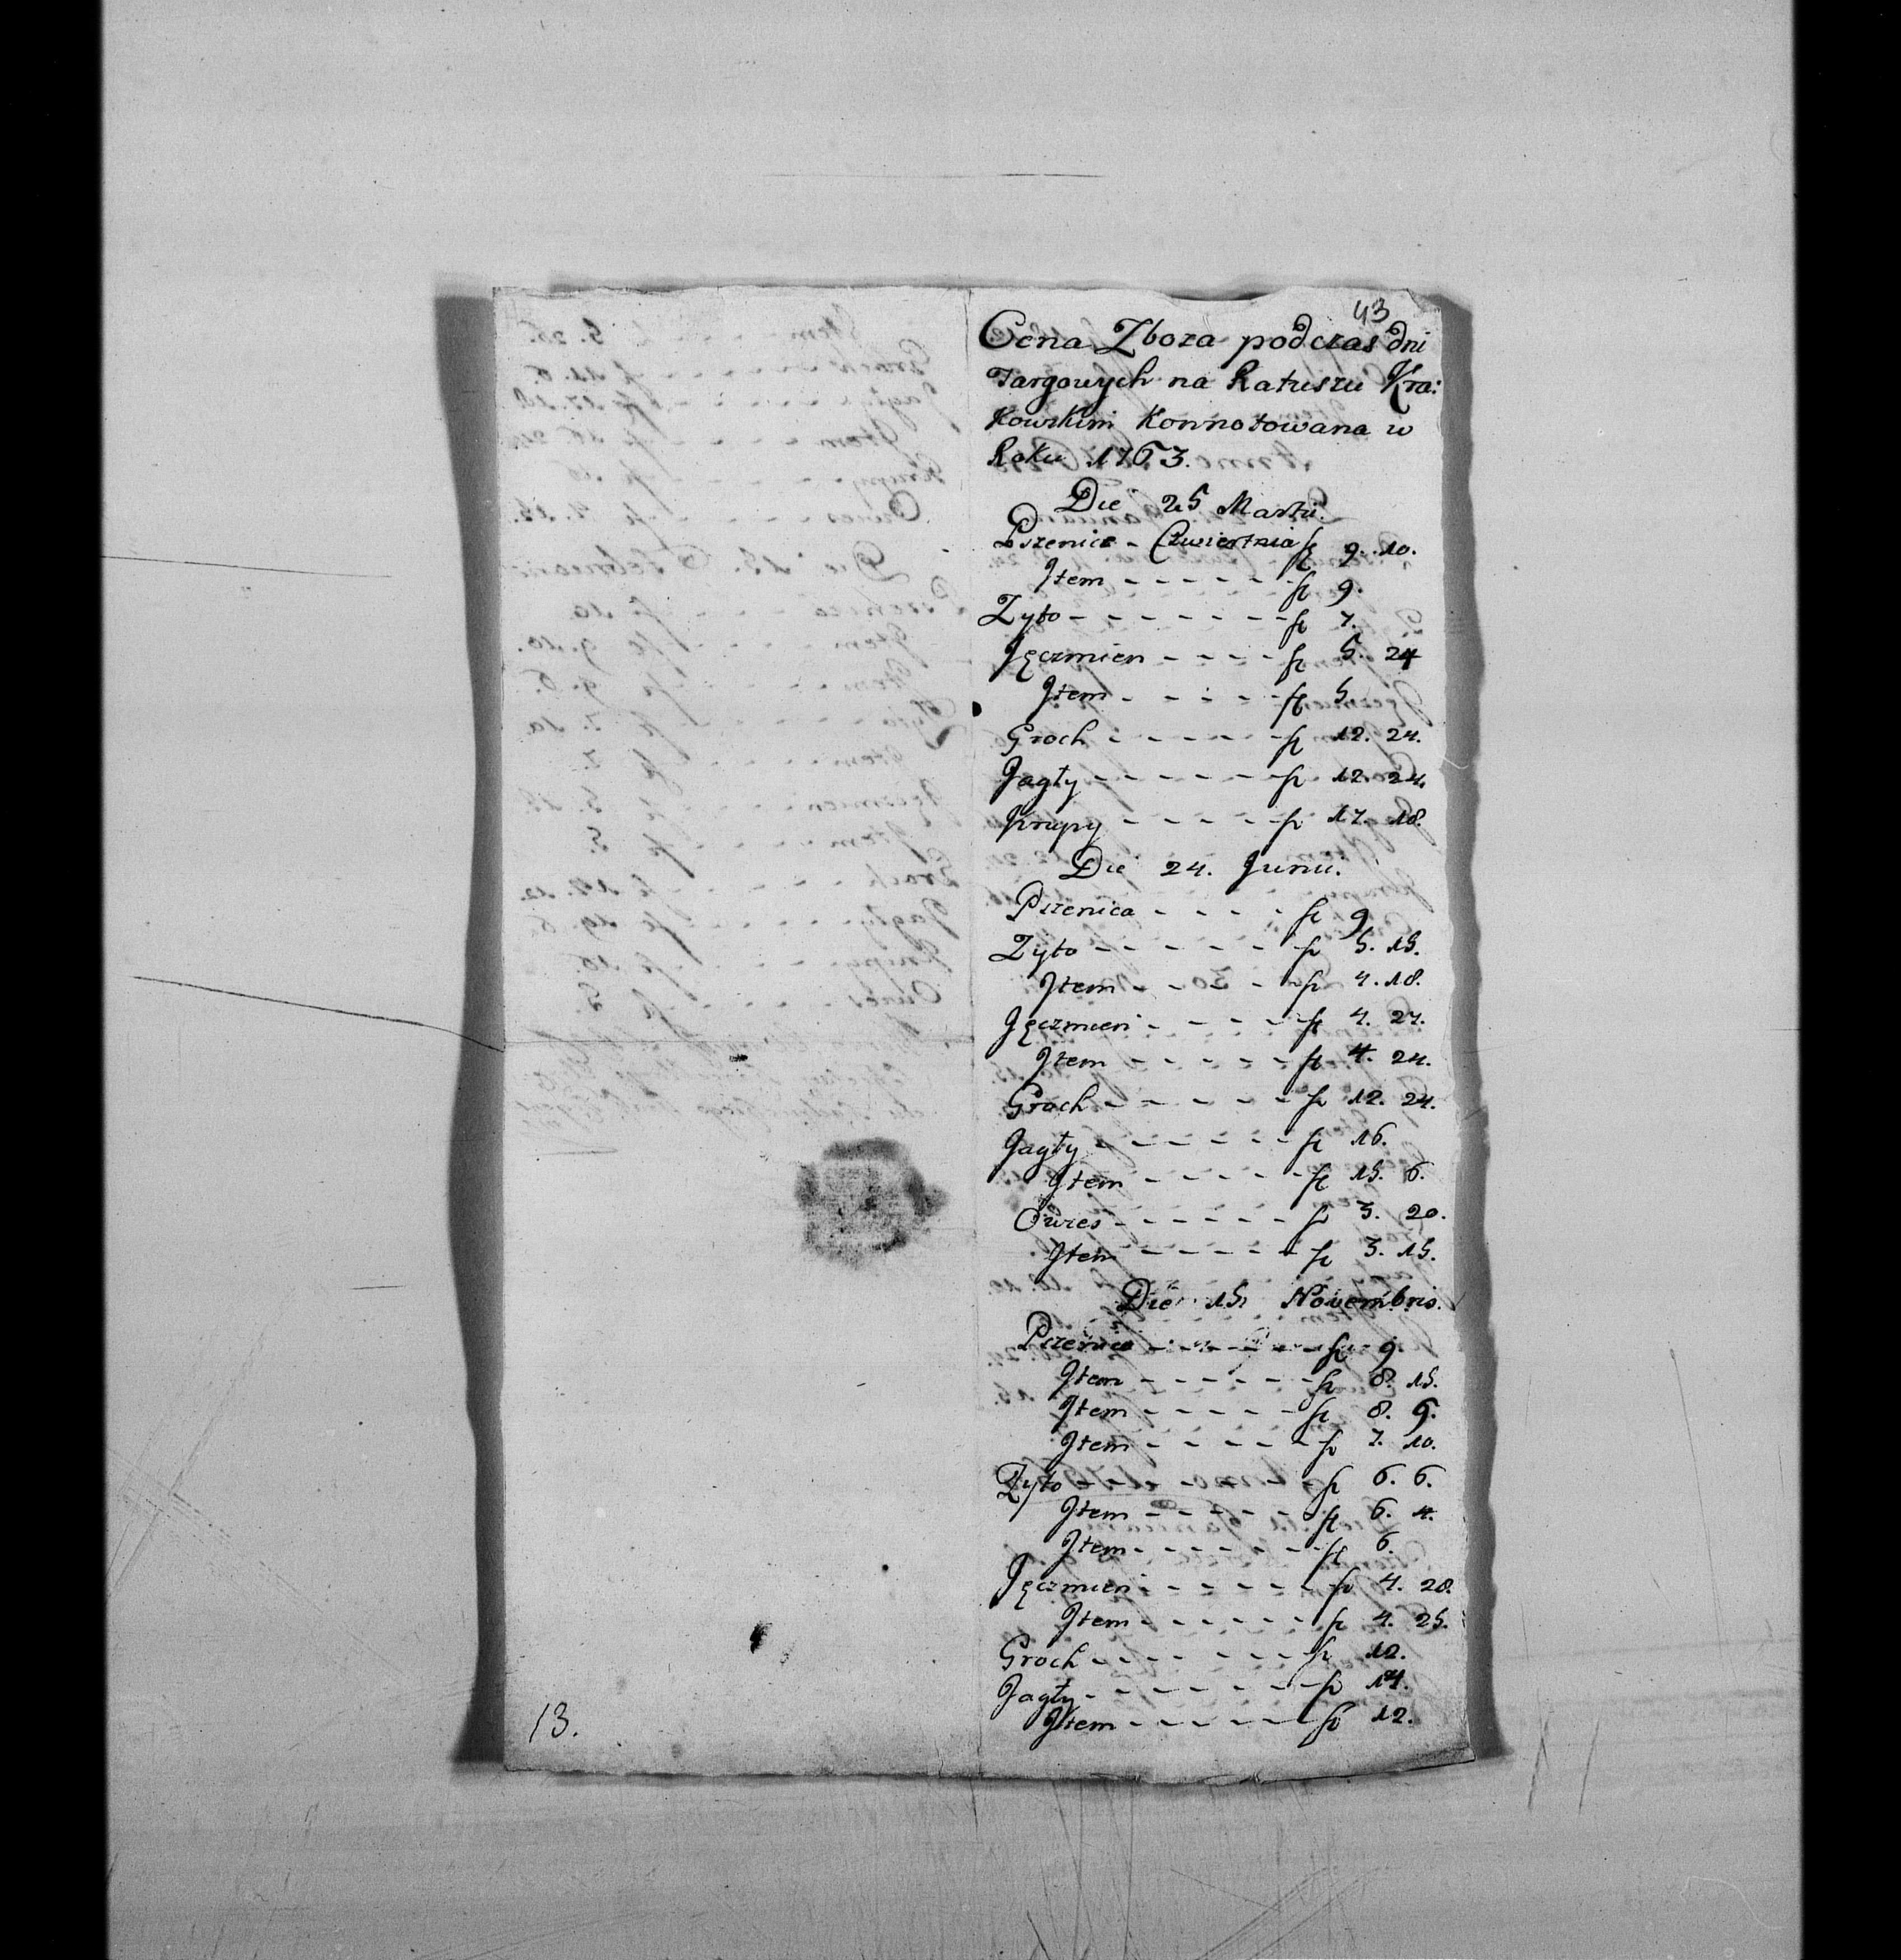 43
Cena Zboza podczas dni
Targowych na Ratuszu Kra:
kowskim Konnotowana w
Roku 1763.
Die 25 Martii.
Pszenica - Cwiertnia fl 9. 10.
Item - - - - - - fl 9.
Zyto - - - - - - - fl 7.
Jęczmien - - - - - fl 5. 24
Item - - - - - fl 5.
Groch - - - - - - fl 12. 24.
Jagły - - - - - - fl 12. 24.
Krupy - - - - - - fl 17. 18.
Die 24. Junii.
Pszenica - - - - fl 9
Zyto - - - - - - fl 5. 15.
Item - - - - - fl 4. 18.
Jęczmien - - - - - fl 4. 27.
Item - - - - - fl 4. 24.
Groch - - - - - - fl 12. 24.
Jagły - - - - - - fl 16.
Item - - - - - fl 15. 6.
Owies - - - - - - fl 3. 20.
Item - - - - - - fl 3. 15.
Die 15 Novembris.
Pszenica - - - - - - fl 9.
Item - - - - - - fl 8. 15.
Item - - - - - fl 8. 6.
Item - - - - - fl 7. 10.
Zyto - - - - - - fl 6. 6.
Item - - - - - - fl 6. 4.
Item - - - - - - fl 6.
Jęczmien - - - - - fl 4. 28.
Item - - - - - - fl 4. 25.
Groch - - - - - - fl 12.
Jagły - - - - - - fl 14.
Item - - - - - - fl 12.
13.